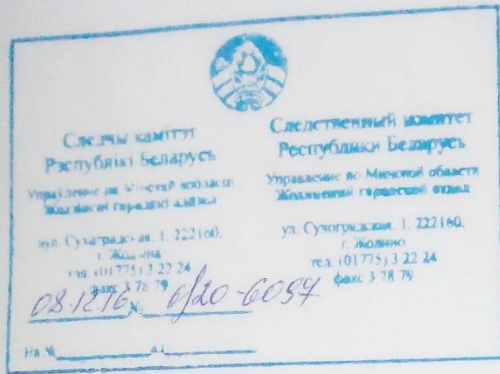 Следчы камітэт
Рэспублікі Беларусь
Упраўленне па Мінскай вобласці
Жодзінскі гарадскі аддзел
вул. Сухаградская, 1, 222160,
г. Жодзіна
тэл. (01775) 3 22 24
факс 3 78 79
Следственный комитет
Республики Беларусь
Управление по Минской области
Жодинский городской отдел
ул. Сухоградская, 1, 222160,
г. Жодино
тел. (01775) 3 22 24
факс 3 78 79
08.12.16 № 6/20-6097
На №